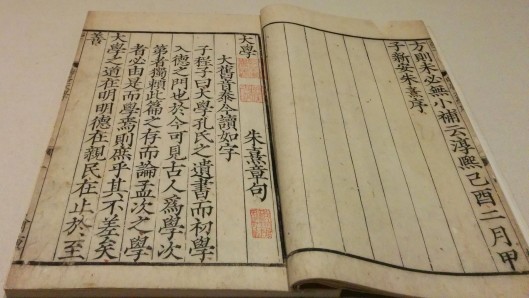 方則未必無小補云淳熙己酉二月甲
子新安朱熹序
大學　朱熹章句
大舊音泰今讀如字
子程子曰大學孔氏之遺書而初學
入德之門也於今可見古人爲學次
第者獨賴此篇之存而論孟次之學
者必由是而學焉則庶乎其不差矣
大學之道在明明德在親民在止於至
善